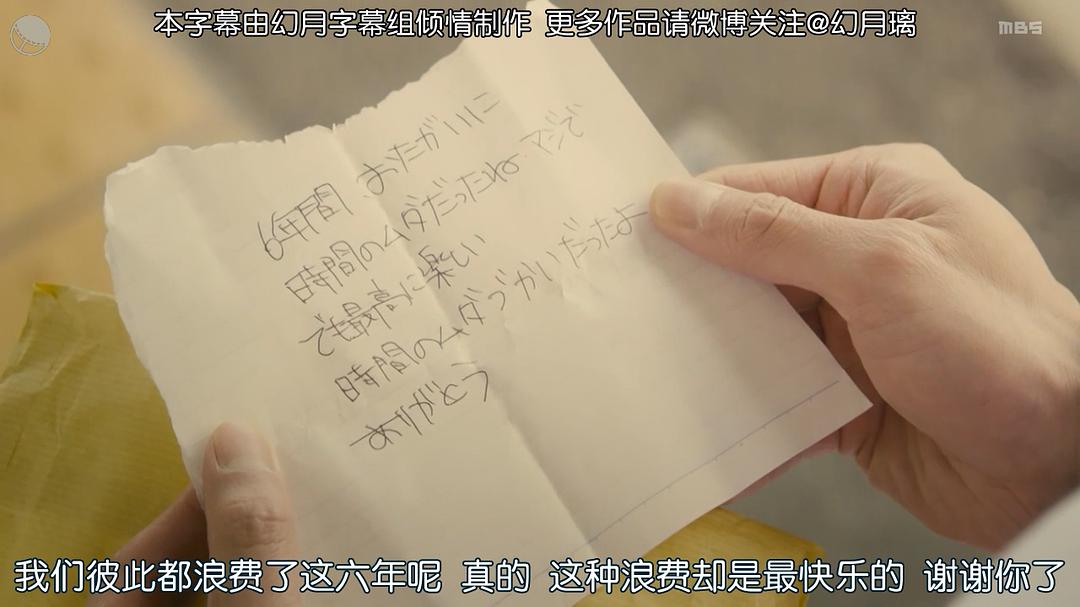 本字幕由幻月字幕组倾情制作 更多作品请微博关注@幻月璃
MBS
6年間 おたがいに
時間のムダだったね.マジで
でも最高に楽しい
時間のムダづかいだったよー
ありがとう
我们彼此都浪费了这六年呢 真的 这种浪费却是最快乐的 谢谢你了